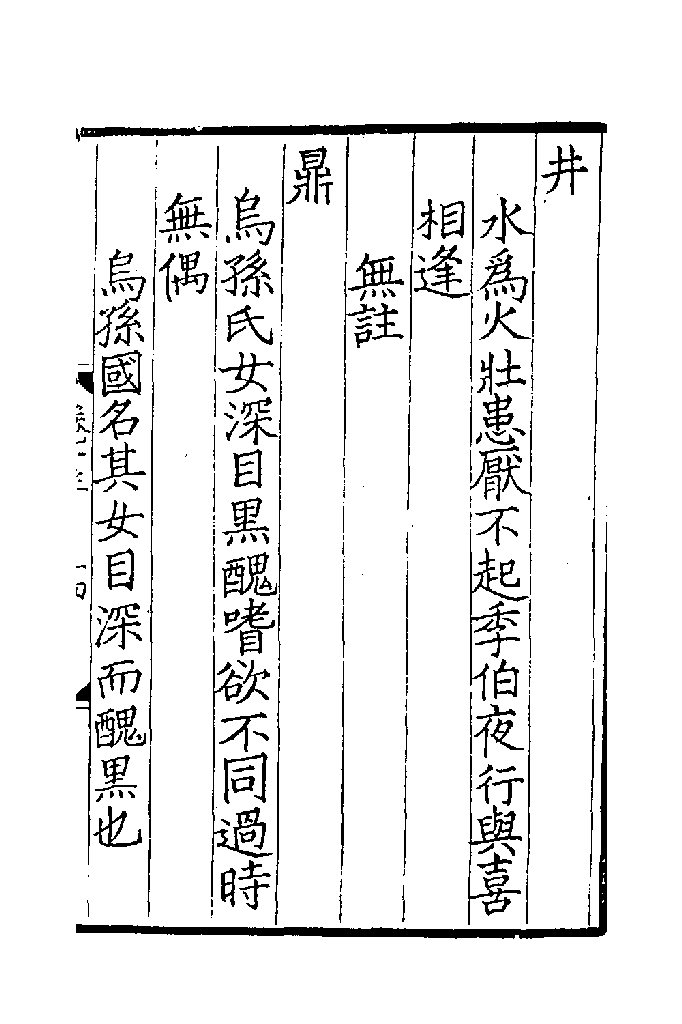 井
水爲火壯患厭不起季伯夜行與喜
相逢
無註
鼎
烏孫氏女深目黒醜嗜欲不同過時
無偶
烏孫國名其女目深而醜黒也